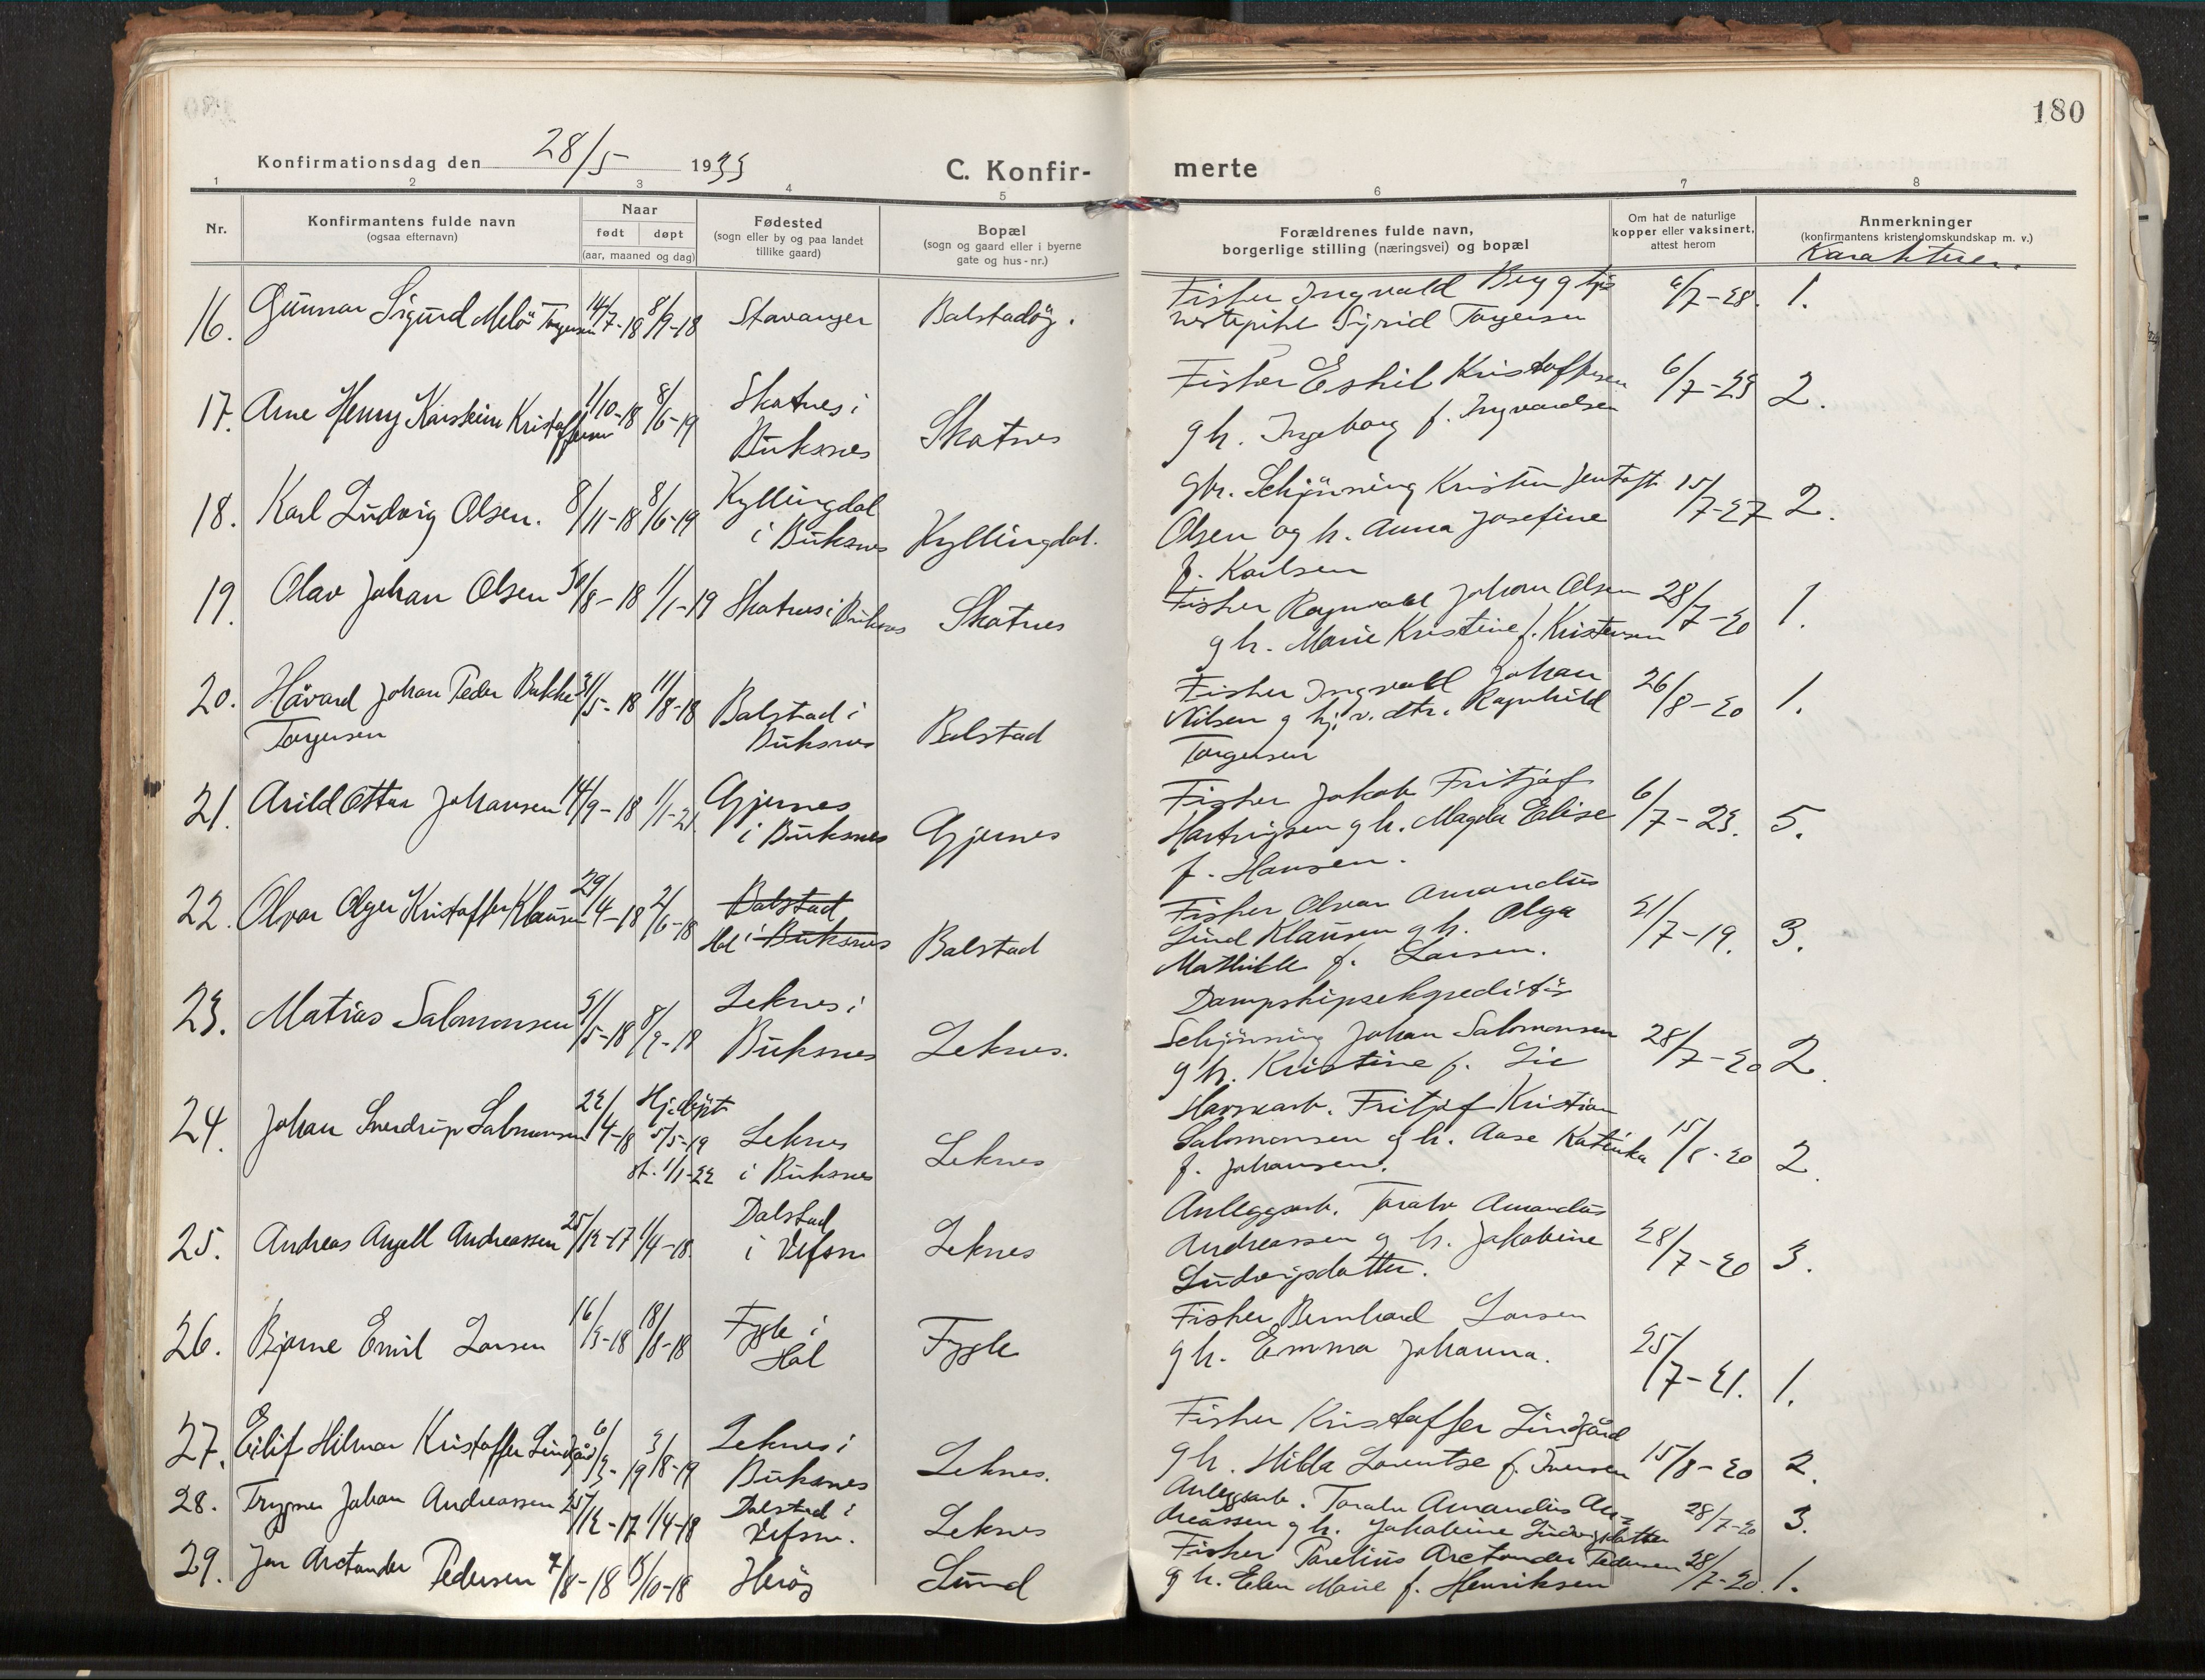 180
Konfirmationsdag den 28/5 1933
C. Konfir-
merte
1 2 3 4 5 6 7 8
Nr.
Konfirmantens fulde navn
(ogsaa efternavn)
Naar
født døpt
(aar, maaned og dag)
Fødested
(sogn eller by og paa landet
tillike gaard)
Bopæl
(sogn og gaard eller i byerne
gate og hus-nr.)
Forældrenes fulde navn,
borgerlige stilling (næringsvei) og bopæl
Om hat de naturlige
kopper eller vaksinert,
attest herom
Anmerkninger
(konfirmantens kristendomskundskap m. v.)
Karakterer.
16. Gunnar Sigurd Melö Torgersen 14/7-18 8/9-18 Stavanger Balstadöy.
Fisker Ingvald Brygg
Sigrid Torgersen 1.
17. Arne Henry Karstein Kristoffersen 1/10-18 8/6-19 Skotnes i
Buksnes Skotnes
Fisker Eskil Kristoffersen 6/7-23 2.
g h. Ingeborg f. Ingvardsen
18. Karl Ludvig Olsen. 8/11-18 8/6-19 Kyllingdal
i Buksnes Kyllingdal.
Gbr. Schjönning Kristen Jentoft 15/7-27 2.
Olsen og h. Anna Josefine
f. Karlsen
19. Olav Johan Olsen 30/8-18 1/1-19 Skotnes i Buksnes Skotnes
Fisker Ragnvald Johan Olsen 28/7-20 1.
g h. Marie Kristine f. Kristensen
20. Håvard Johan Peder Bakke 31/5-18 11/8-18 Balstad i
Torgersen Buksnes Balstad
Fisker Ingvald Johan 26/8-20 1.
Nilsen g hj. v. dtr. Ragnhild
Torgersen
21. Arild Ottar Johansen 14/9-18 1/1-21 Gjernes
i Buksnes Gjernes
Fisker Jakob Fritjof 6/7-23. 5.
Hartvigsen g h. Magda Elise
f. Hansen.
22. Olvar Olger Kristoffer Klausen 29/4-18 2/6-18 Balstad
Hol i Buksnes Balstad
Fisker Olvar Amandus
Lind Klausen g h. Olga 31/7-19. 3.
Mathilde f. Larsen.
23. Matias Salomonsen 31/5-18 8/9-18 Leknes i
Buksnes Leknes.
Dampskipsekspeditör
Schjönning Johan Salomonsen 28/7-20 2.
g h. Kristine f. Lie
24. Johan Sverdrup Salomonsen 22/4-18 Hj.döpt
5/5-19 Leknes
st. 1/1-22 i Buksnes Leknes
Havnearb. Fritjof Kristian
Salomonsen g h. Aase Katinka 15/8-20 2.
f. Johansen.
25. Andreas Angell Andreassen 25/12-17 1/4-18. Dolstad
i Vefsn Leknes
Anleggsarb. Toralv Amandus
Andreassen g h. Jakobine 28/7-20 3.
Ludvigsdatter.
26. Bjarne Emil Larsen 16/3-18 18/8-18 Fygle i
Hol Fygle
Fisker Bernhard Larsen
g h. Emma Johanna. 25/7-21. 1.
27. Eilif Hilmar Kristoffer Lindgård 6/3-19 3/8-19 Leknes i
Buksnes Leknes.
Fisker Kristoffer Lindgård
g h. Hilda Lorentse f. Iversen 15/8-20 2.
28. Trygve Johan Andreassen 25/12-17 1/4-18 Dolstad i
Vefsn. Leknes
Anleggsarb. Toralv Amandus An= 28/7-20 3.
dreassen g h. Jakobine Ludvigsdatter
29. Jan Arctander Pedersen 7/8-18 13/10-18 Heröy Lund
Fisker Parelius Arctander Pedersen 28/7-20. 1.
g h. Elen Marie f. Henriksen